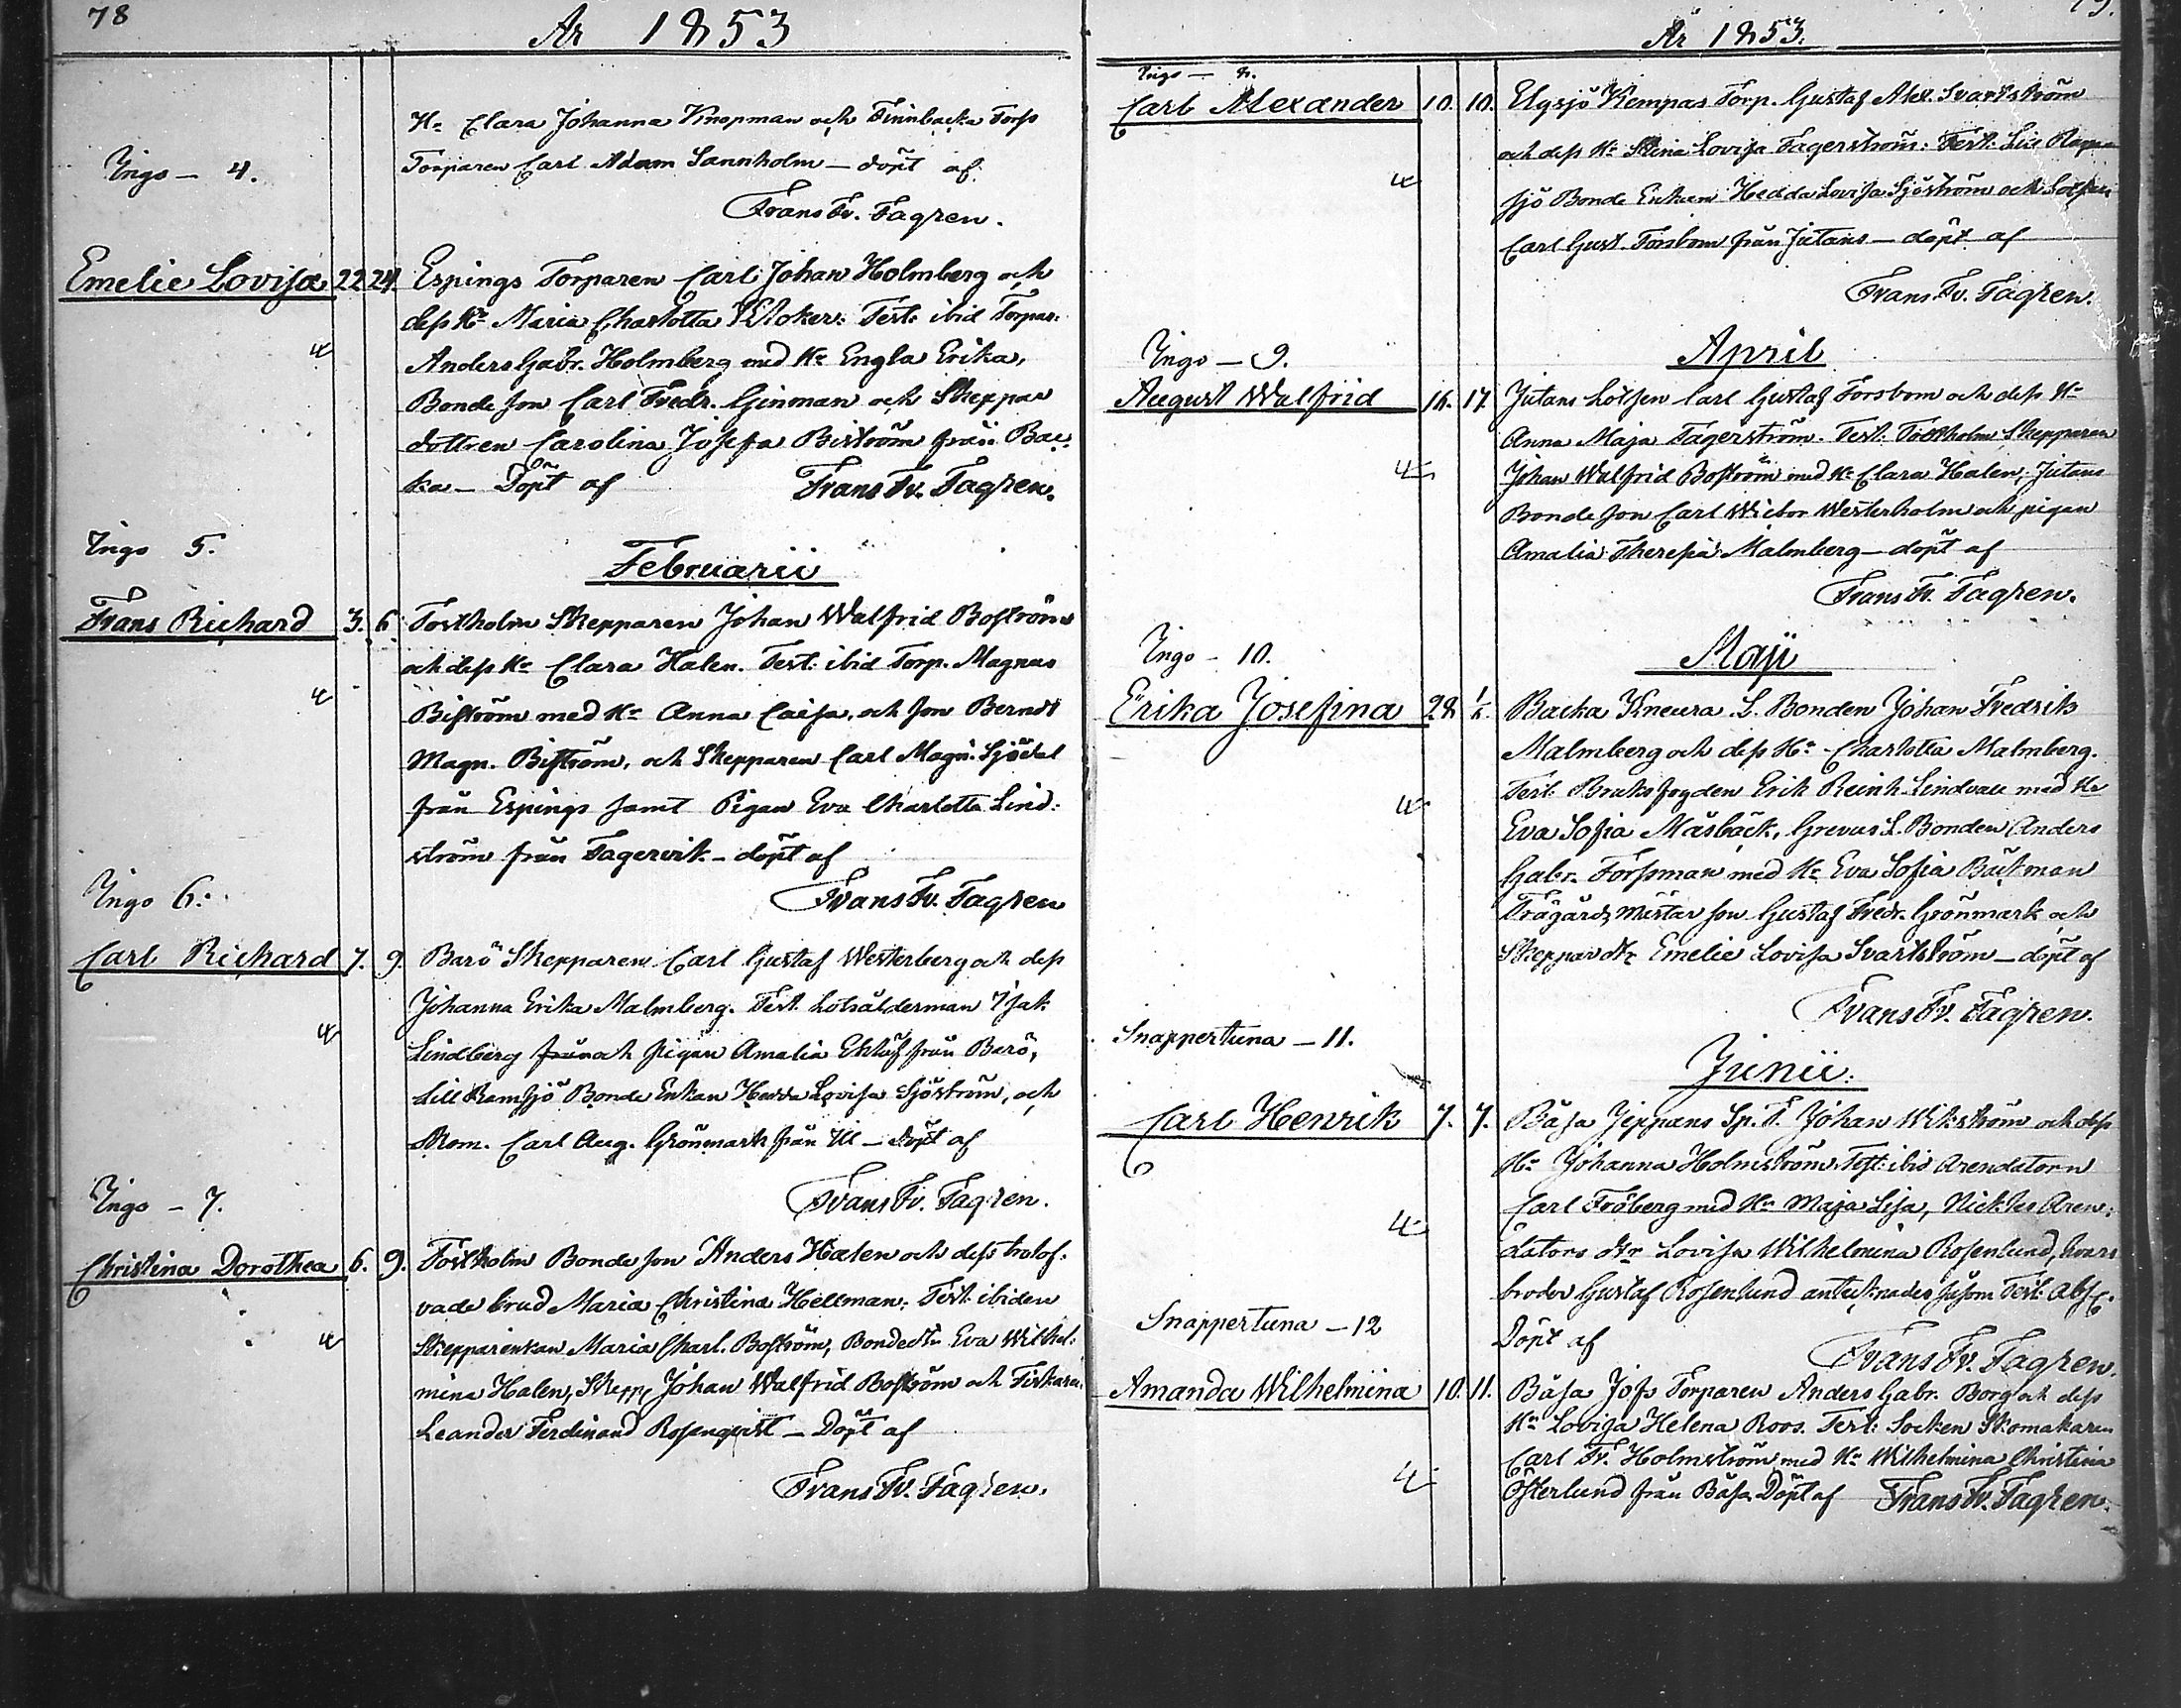 78
År 1853
Hu Clara Johanna Knopman och Finnbacka Torp
Torparen Carl Adam Sannholm — döpt af
Frans Fr. Fagren.
Ingo — 4.
Emelie Lovisa 22. 24. Espings Torparen Carl Johan Holmberg och
dess Hu Maria Charlotta Test: ibid Torpar.
Anders Gabr. Holmberg med Hu Engla Erika,
Bonde son Carl Fredr. Ginman och Skeppar
dottren Carolina Josefa Biström från Bac-
ka — Döpt af Frans Fr. Fagren.
Ingo 5.
Februarii
Frans Richard 3. 6. Torsholm Skepparen Johan Walfrid Boström
och dess Hu Clara Halen. Test: ibid Torp. Magnus
Biström med Hu Anna Caisa, och son Berndt
Magn. Biström, och Skepparen Carl Magn. Sjödal
från Espings samt Pigan Eva Charlotta Lind:
ström från Fagervik — döpt af
Frans Fr. Fagren
Ingo 6.
Carl Richard 7. 9. Barö Skepparen Carl Gustaf Westerberg och dess
Johanna Erika Malmberg. Test. Lotsålderman Isak
Lindberg från och pigan Amalia Eklöf från Barö,
Lill Ramsjö Bonde Enkan Hedda Lovisa Sjöström, och
Skom. Carl Aug. Grönmark från — döpt af
Frans Fr. Fagren.
Ingo — 7.
Christina Dorothea 6. 9. Torsholm Bonde son Anders Halen och dess trolof-
vade brud Maria Christina Hellman. Test: ibidem
Skepparenkan Maria Charl. Boström, Bondedtr Eva Wilhel-
mina Halen, Skepp. Johan Walfrid Boström och Fiskaren
Leander Ferdinand Rosenqvist — Döpt af
Frans Fr. Fagren.
År 1853.
Ingo — 8.
Carl Alexander 10. 10. Elgsjö Kempas Torp. Gustaf Alex. Svartström
och dess Hu Stina Lovisa Fagerström. Test: Lill
sjö Bonde Enkan Hedda Lovisa Sjöström och Lotsen
Carl Gust. Forsbom från Jutans — döpt af
Frans Fr. Fagren.
April
Ingo — 9.
August Walfrid 16. 17. Jutans Lotsen Carl Gustaf Forsbom och dess Hu
Anna Maja Fagerström. Test: Torsholm Skepparen
Johan Walfrid Boström med Hu Clara Halen, Jutans
Bonde son Carl Wictor Westerholm och pigan
Amalia Theresia Malmberg — döpt af
Frans Fr. Fagren.
Maji
Ingo — 10.
Erika Josefina 28 1/6. Backa Kneura L. Bonden Johan Fredrik
Malmberg och dess Hu Charlotta Malmberg.
Test. Bruksfogden Erik Reinh. Lindvall med Hu
Eva Sofia Måsbäck, Grevas L. Bonden Anders
Gabr. Forssman med Hu Eva Sofia Bäckman
Trägårdsmästar son Gustaf Fredr. Grönmark och
Skeppar dtr Emelie Lovisa Svartström — döpt af
Frans Fr. Fagren.
Snappertuna — 11.
Junii.
Carl Henrik 7. 7. Båsa Jeppans Sp. T. Johan Wikström och dess
Hu Johanna Holmström. Test: ibid Arendatorn
Carl Fröberg med Hu Maja Lisa, Nickles Aren-
dators dtr Lovisa Wilhelmina Rosenlund, hvars
broder Gustaf Rosenlund antecknades såsom Test. Abs.
Döpt af Frans Fr. Fagren.
Snappertuna — 12
Amanda Wilhelmina 10. 11. Båsa Jofs Torparen Anders Gabr. Borg och dess
Hu Lovisa Helena Roos. Test: Socken Skomakaren
Carl Fr. Holmström med Hu Wilhelmina Christina
Österlund från Båsa Döpt af Frans Fr. Fagren.